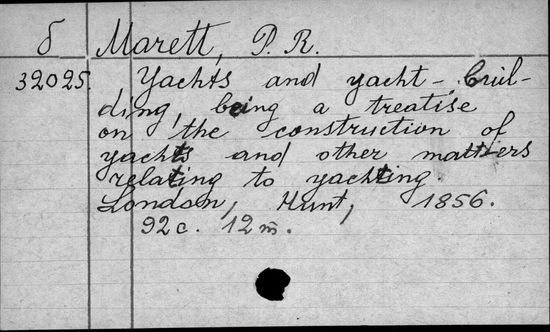 б Marett, P. R.
32025. Yachts and yacht-buil-
ding, being a treatise
on the construction of
yachts and other matters
relating to yachting.
London, Hunt, 1856.
92 c. 12 m̄.